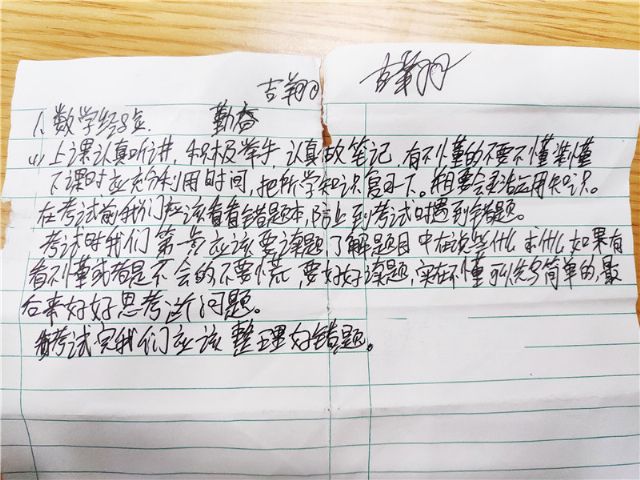 吉翔
1、数学经验 勤奋
(1)上课认真听讲,积极举手,认真做笔记,有不懂的不要不懂装懂
下课时应充分利用时间,把所学知识复习一下。并且要会灵活运用知识。
在考试前我们应该看看错题本,防止到考试时遇到错题。
考试时我们第一步应该要读题,了解题目中在说些什么求什么如果有
看不懂或者是不会的不要慌,要好好读题,实在不懂可以先写简单的,最
后来好好思考这问题。
考试完我们应该整理好错题。